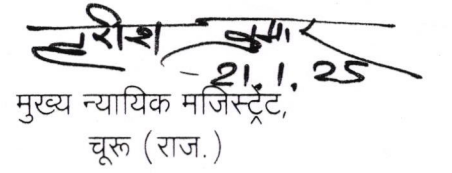 हरीश कुमार
21.1.25
मुख्य न्यायिक मजिस्ट्रेट,
चूरू (राज.)